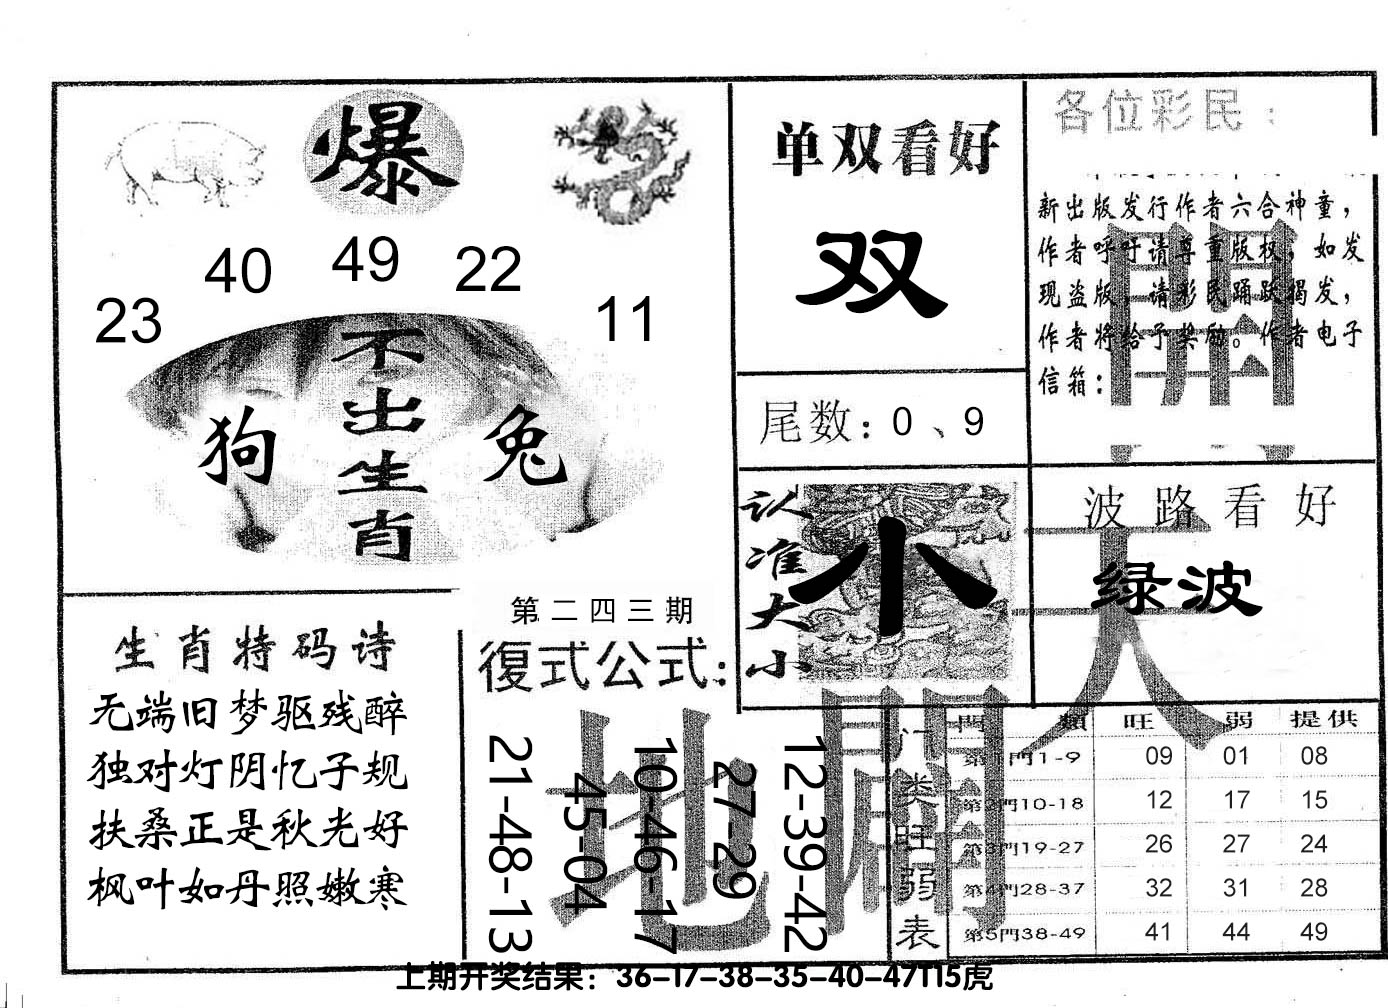 爆
40 49 22
23 11
不出生肖
狗 兔
单双看好
双
尾数：0、9
各位彩民：
新出版发行作者六合神童，
作者呼吁请尊重版权，如发
现盗版，请彩民踊跃揭发，
作者将给予奖励。作者电子
信箱：
认准大小
小
波路看好
绿波
天開
地闢
生肖特码诗
无端旧梦驱残醉
独对灯阴忆子规
扶桑正是秋光好
枫叶如丹照嫩寒
第二四三期
復式公式：
21-48-13
45-04
10-46-17
27-29
12-39-42
门类旺弱表
門類 旺 弱 提供
第1門1-9 09 01 08
第2門10-18 12 17 15
第3門19-27 26 27 24
第4門28-37 32 31 28
第5門38-49 41 44 49
上期开奖结果：36-17-38-35-40-47T15虎